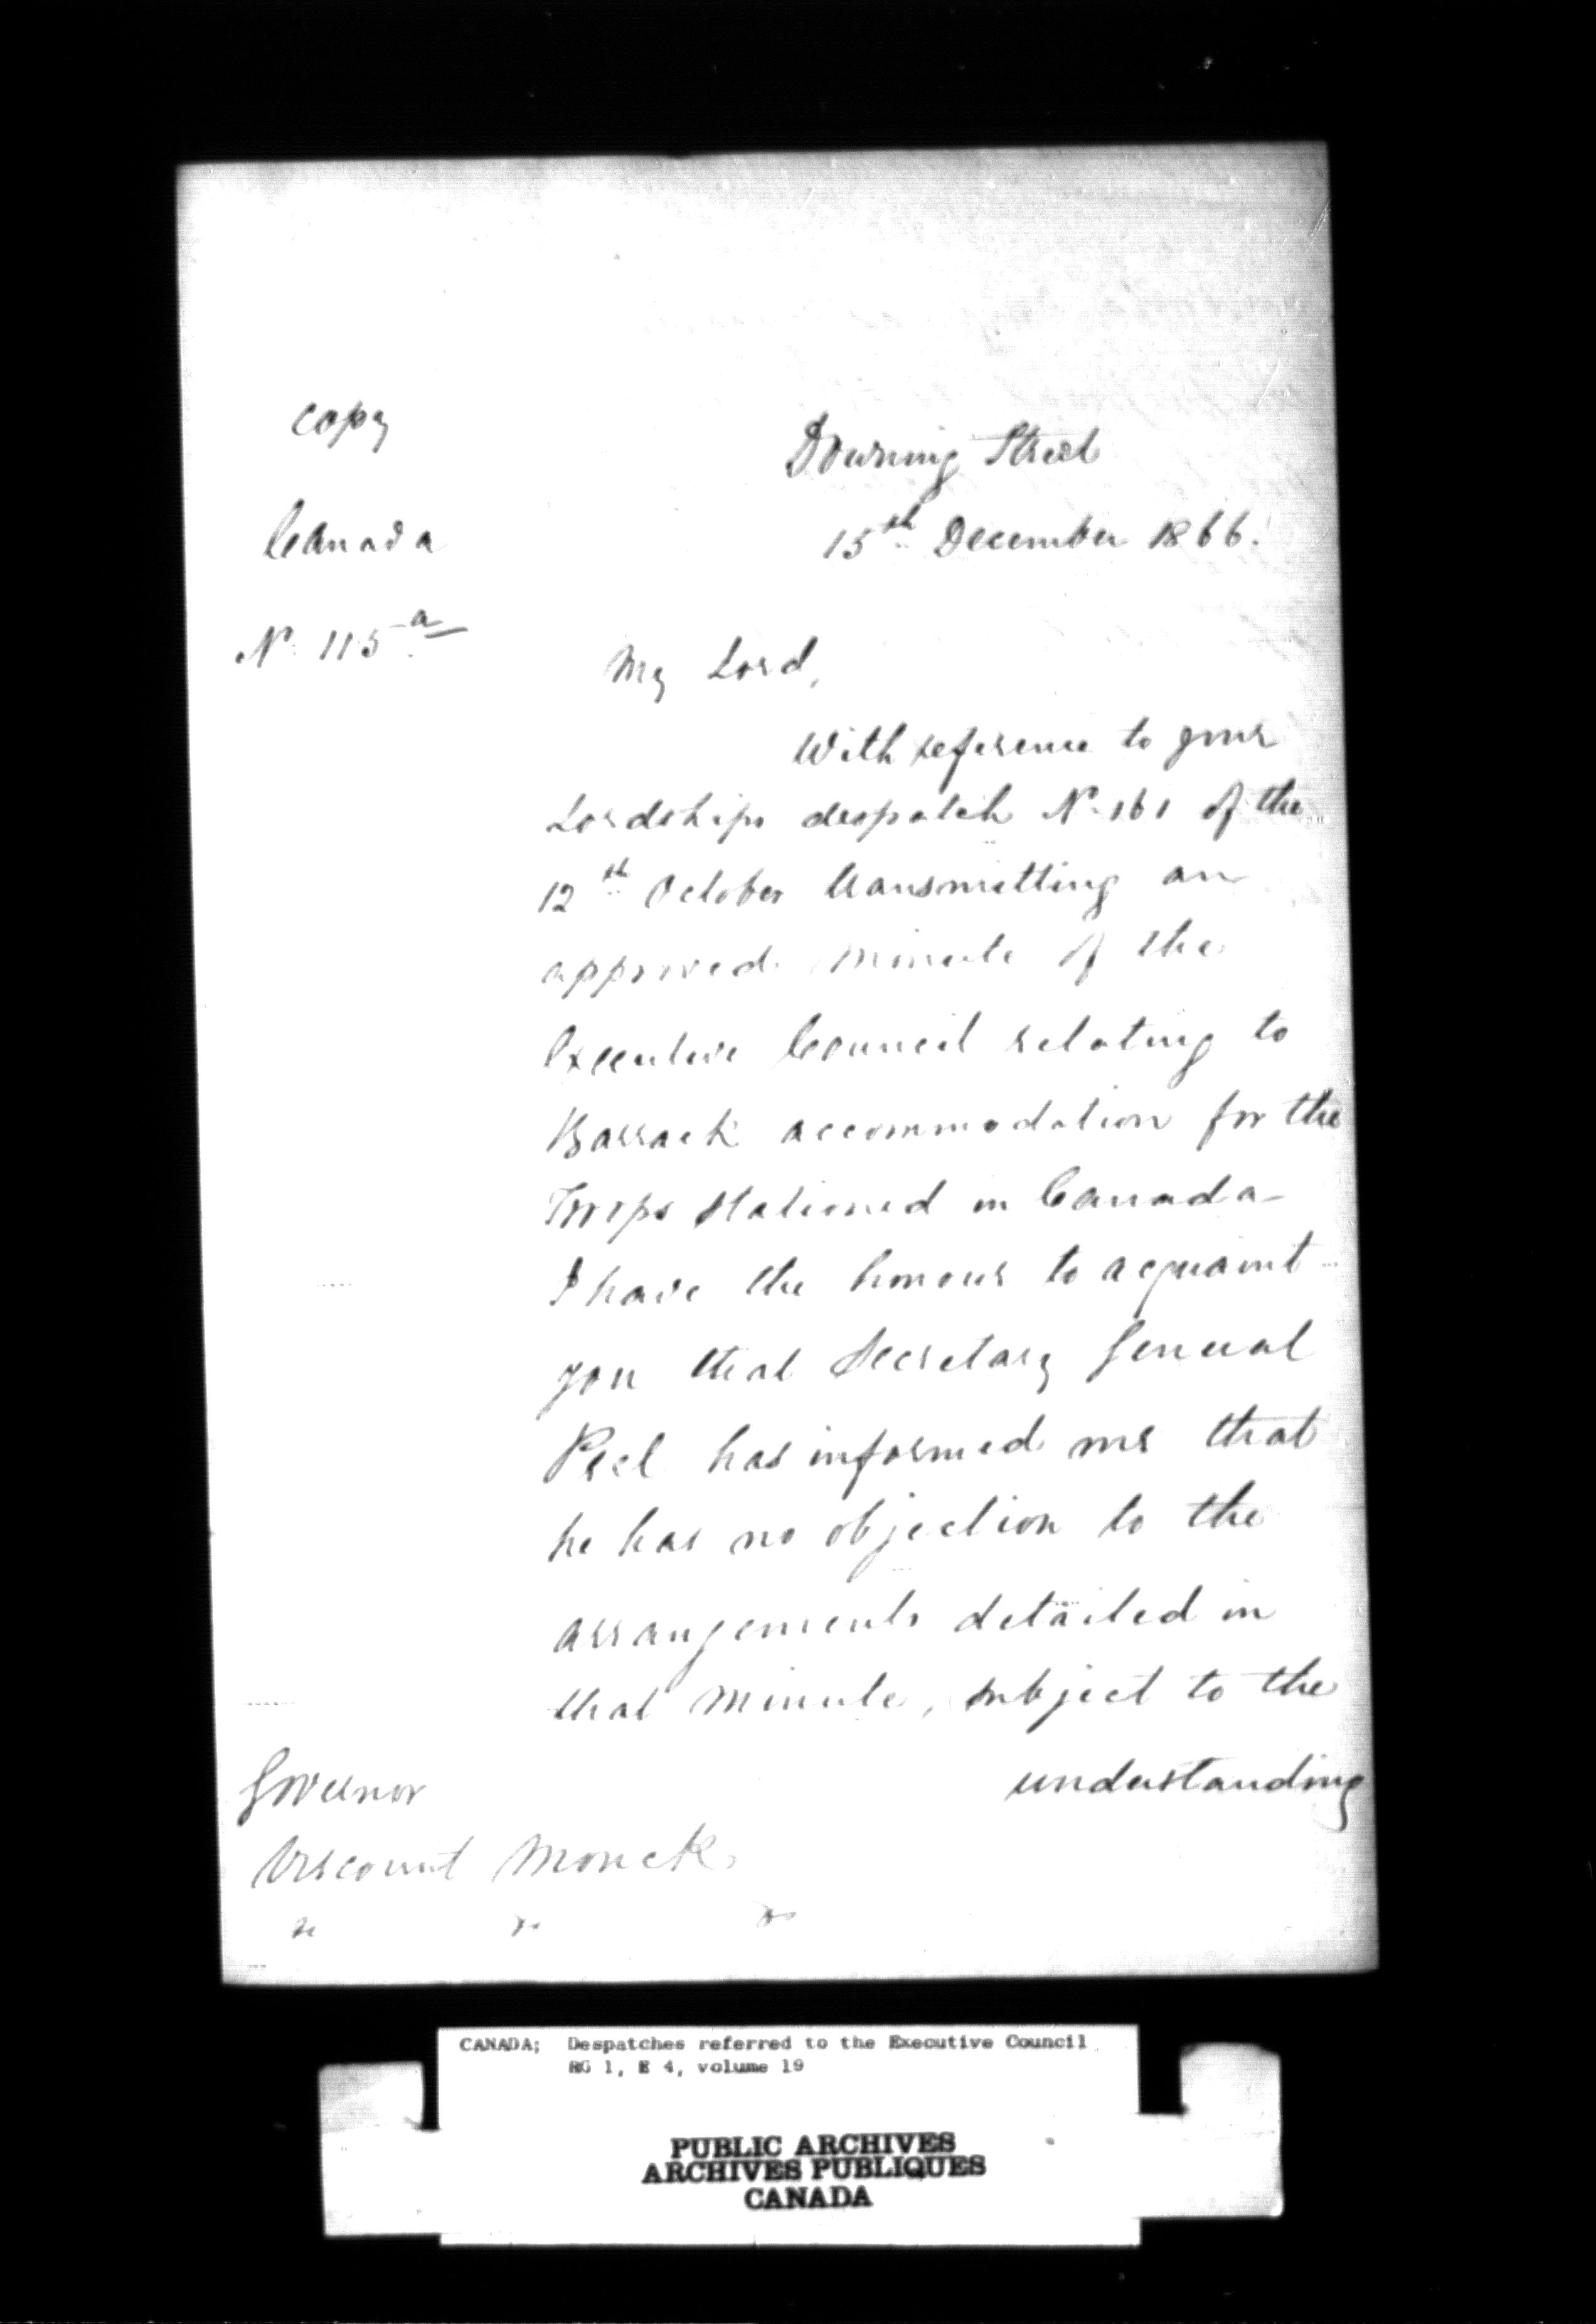 Copy
Downing Street
Canada
15th December 1866.
No 115 a
My Lord,
With reference to your
Lordships despatch No 161 of the
12th October transmitting an
approved Minute of the
Executive Council relating to
Barrack accommodation for the
Troops stationed in Canada
I have the honour to acquaint
you that Secretary General
Peel has informed me that
he has no objection to the
arrangements detailed in
that Minute, subject to the
understanding
Governor
Viscount Monck
CANADA; Despatches referred to the Executive Council
RG 1, E 4, volume 19
PUBLIC ARCHIVES
ARCHIVES PUBLIQUES
CANADA